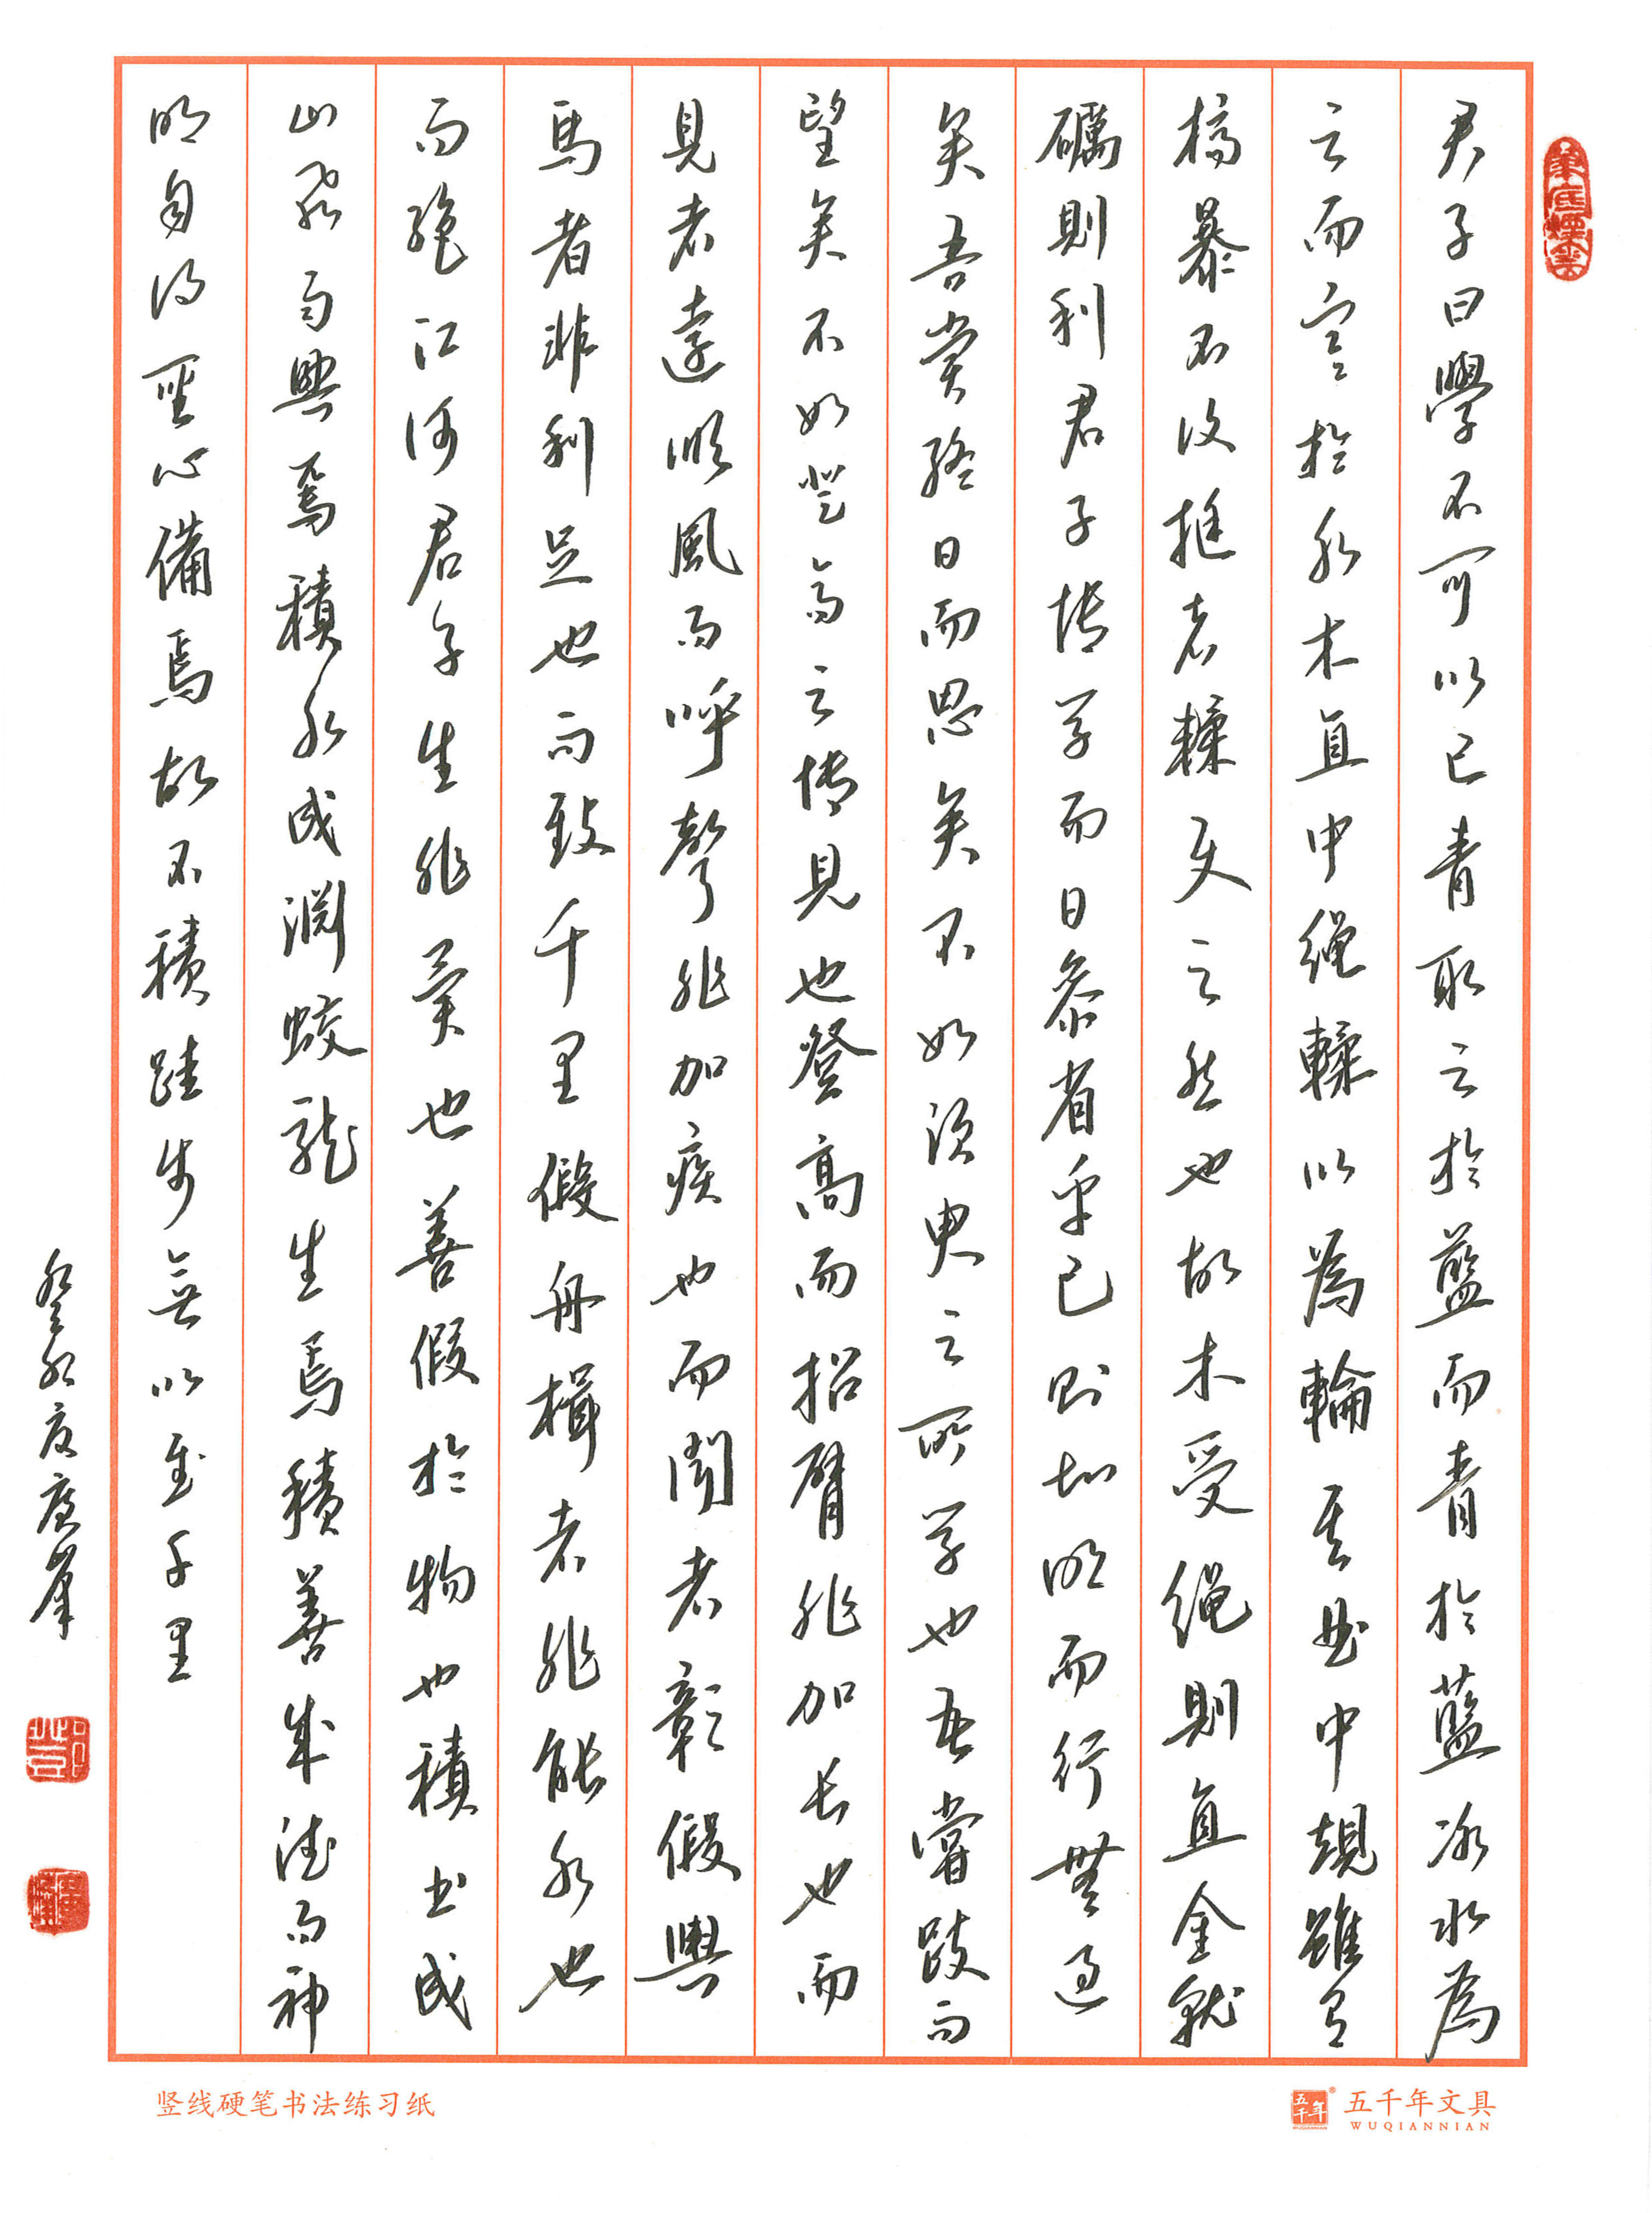 筆底煙雲
君子曰學不可以已青取之於藍而青於藍冰水為
之而寒於水木直中繩輮以為輪其曲中規雖有
槁暴不復挺者輮使之然也故木受繩則直金就
礪則利君子博學而日參省乎己則知明而行無過
矣吾嘗終日而思矣不如須臾之所學也吾嘗跂而
望矣不如登高之博見也登高而招臂非加長也而
見者遠順風而呼聲非加疾也而聞者彰假輿
馬者非利足也而致千里假舟楫者非能水也
而絕江河君子生非異也善假於物也積土成
山風雨興焉積水成淵蛟龍生焉積善成德而神
明自得聖心備焉故不積跬步無以至千里
癸卯夏慶峯
竖线硬笔书法练习纸
五千年文具
WUQIANNIAN